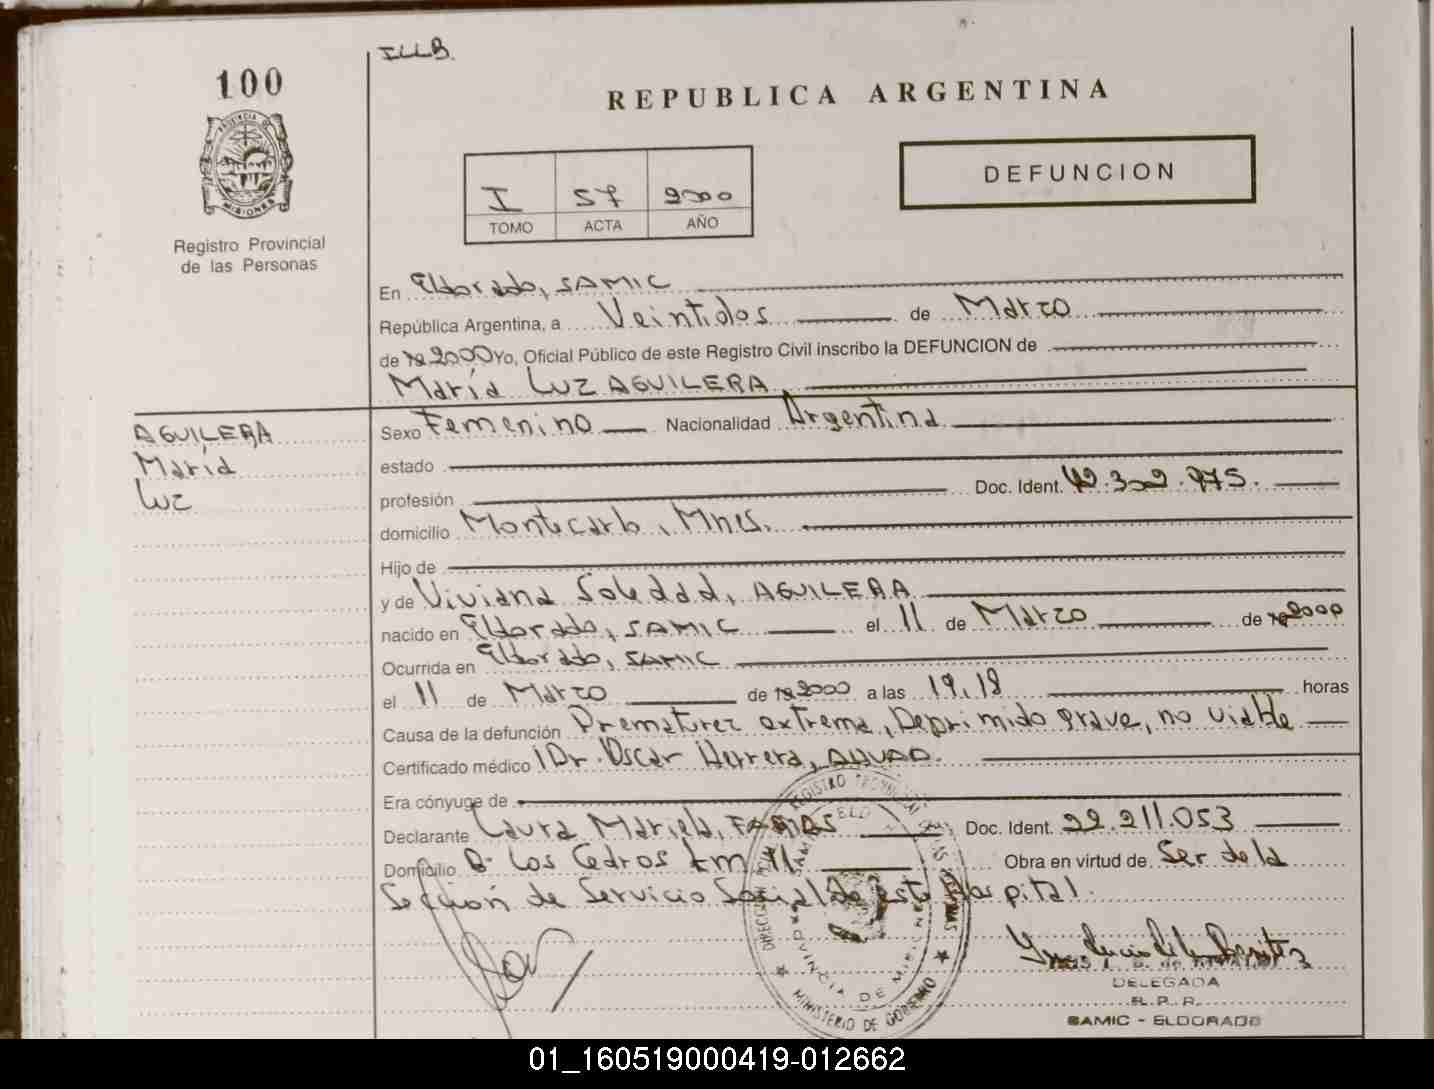 ILLB.
100
REPUBLICA ARGENTINA
DEFUNCION
I 57 2000
TOMO ACTA AÑO
PROVINCIA DE MISIONES
Registro Provincial
de las Personas
En Eldorado, SAMIC
República Argentina, a Veintidos de Marzo
de 19 2000 Yo, Oficial Público de este Registro Civil inscribo la DEFUNCION de
María Luz AGUILERA
AGUILERA
María
Luz
Sexo Femenino Nacionalidad Argentina
estado
profesión Doc. Ident. 42.302.975.
domicilio Montecarlo, Mnes.
Hijo de
y de Viviana Soledad, AGUILERA
nacido en Eldorado, SAMIC el 11 de Marzo de 19 2000
Ocurrida en Eldorado, SAMIC
el 11 de Marzo de 19 2000 a las 19,18 horas
Causa de la defunción Prematurez extrema, Deprimido grave, no viable
Certificado médico Dr. Oscar Herrera,
Era cónyuge de
Declarante Laura Mariela, FARIAS Doc. Ident. 22.211.053
Domicilio Bº Los Cedros km 11 Obra en virtud de Ser de la
Sección de Servicio Social de este Hospital.
PROVINCIA DE MISIONES
MINISTERIO DE GOBIERNO
DELEGADA
R. P. P.
SAMIC - ELDORADO
01_160519000419-012662